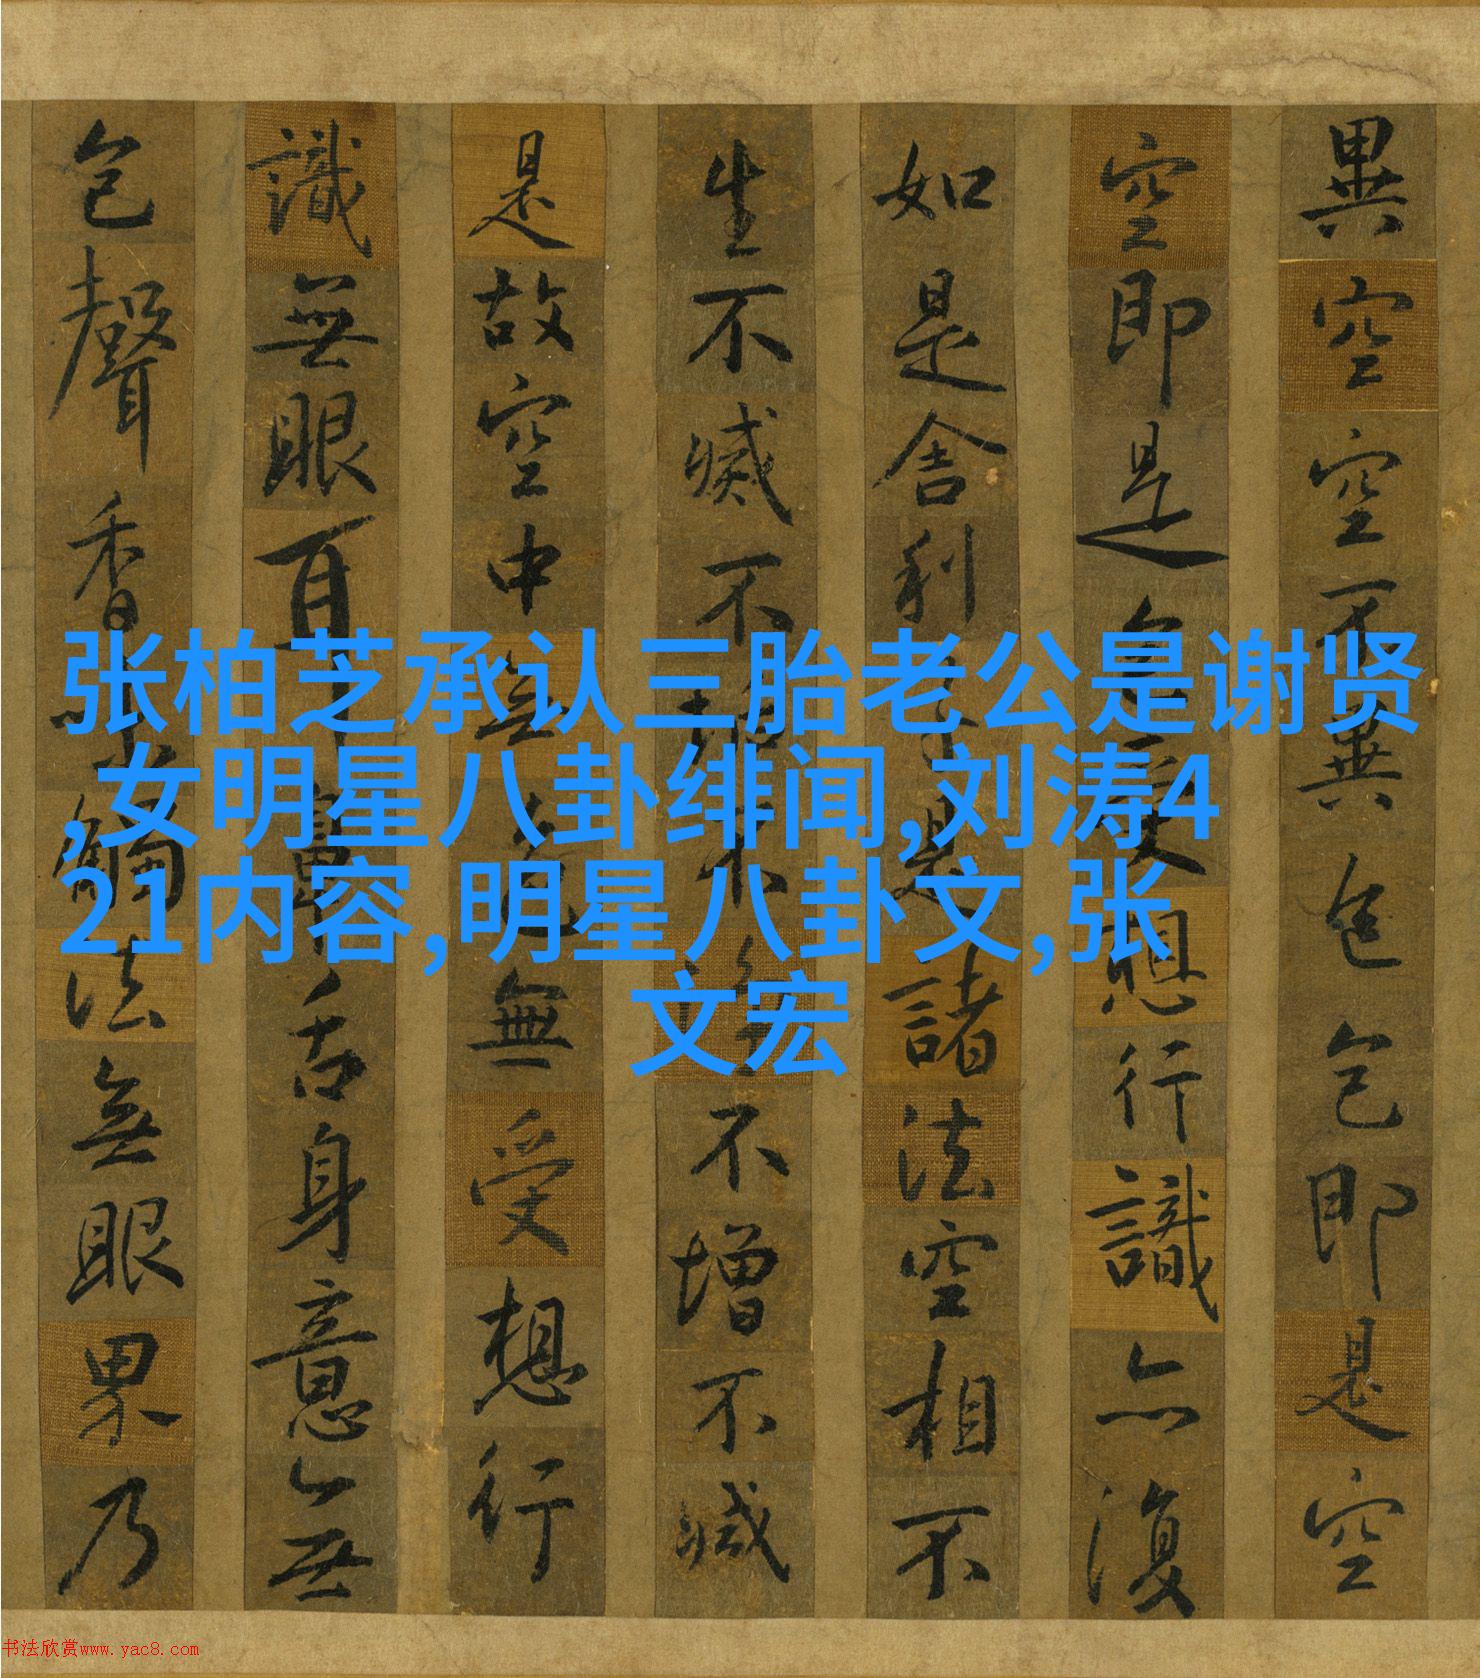 異空空不異色色即是空
空即是色受想行識亦復
如是舍利子是諸法空相不
生不滅不垢不淨不增不減
是故空中無色無受想行
識無眼耳鼻舌身意無
色聲香味觸法無眼界乃
张柏芝承认三胎老公是谢贤
,女明星八卦绯闻,刘涛4
21内容,明星八卦文,张
文宏
书法欣赏www.yac8.com